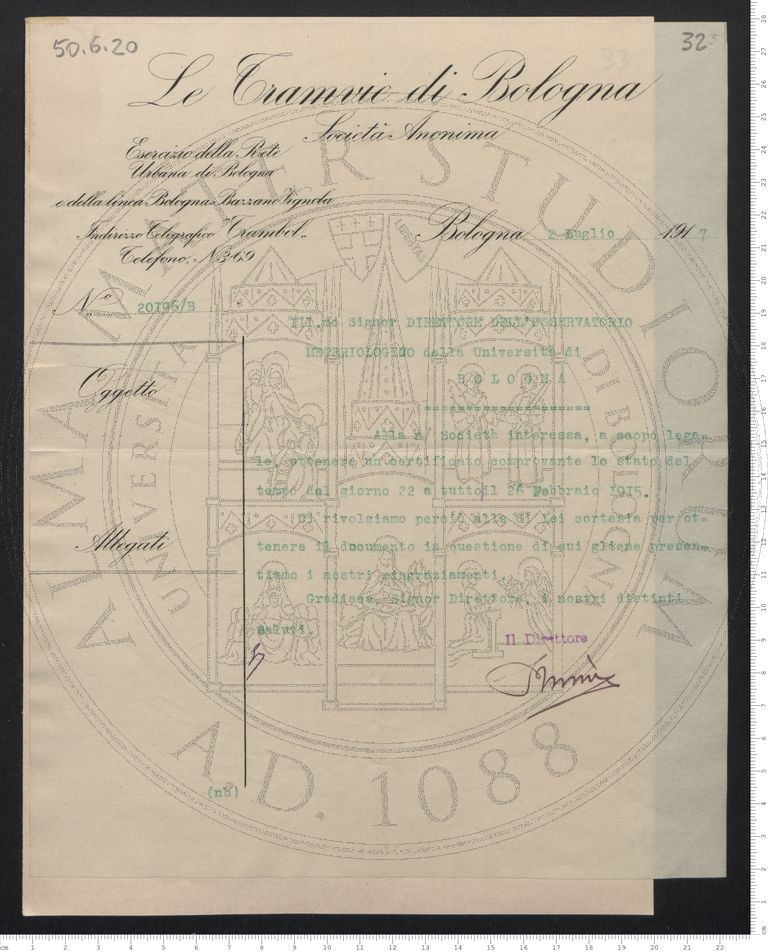 50.6.20
32
33
Le Tramvie di Bologna
Società Anonima
Esercizio della Rete
Urbana di Bologna
e della linea Bologna-Bazzano-Vignola
Indirizzo Telegrafico "Trambol"
Telefono: N. 3-69
Bologna 2 Luglio 1917
No 20196/B
Ill.mo Signor DIRETTORE DELL'OSSERVATORIO
METERIOLOGICO della Università di
BOLOGNA
====================
Oggetto
Alla n/ Società interessa, a scopo lega=
le, ottenere un certificato comprovante lo stato del
tempo dal giorno 22 a tuttoil 26 Febbraio 1915.
Ci rivolgiamo perciò alla di Lei cortesia per ot=
tenere il documento in questione di cui gliene presen=
tiamo i nostri ringraziamenti.
Allegati
Gradisca, Signor Direttore, i nostri distinti
saluti.
Il Direttore
(nb)
ALMA MATER STUDIORUM
UNIVERSITÀ DI BOLOGNA
A.D. 1088